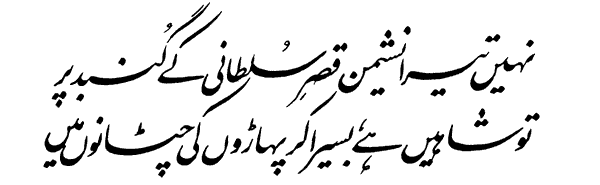 نہیں تیرا نشیمن قصرِ سُلطانی کے گُنبد پر
تو شاہیں ہے بسیرا کر پہاڑوں کی چٹانوں میں